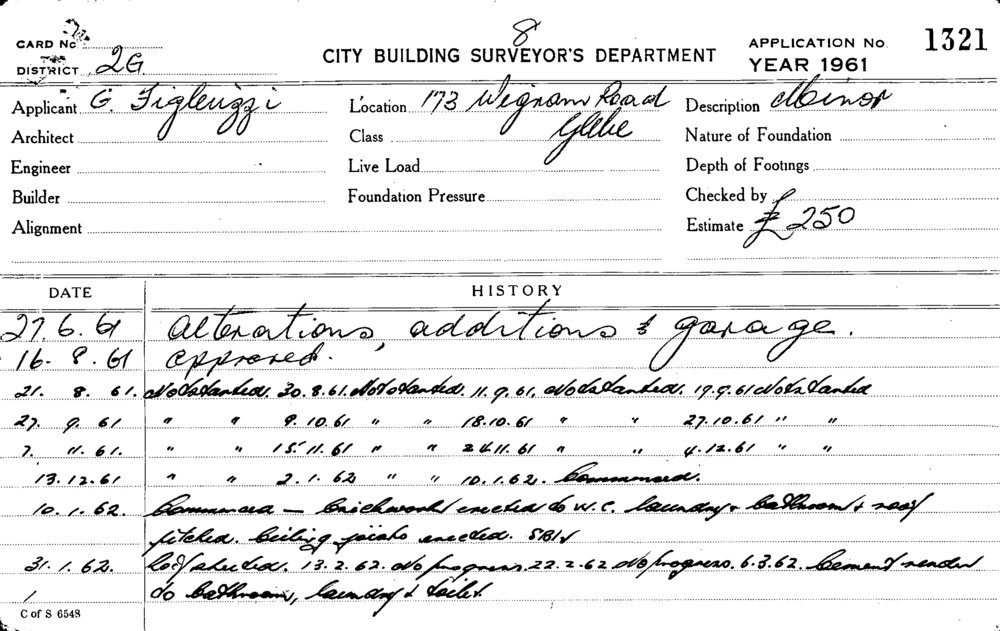 8
CARD No
CITY BUILDING SURVEYOR'S DEPARTMENT
APPLICATION No. 1321
DISTRICT 2G.
YEAR 1961
Applicant G. Figleuzzi
Location 173 Wigram Road
Description Minor
Architect
Class Glebe
Nature of Foundation
Engineer
Live Load
Depth of Footings
Builder
Foundation Pressure
Checked by
Alignment
Estimate £250
DATE HISTORY
27.6.61 Alterations, additions & garage.
16. 8. 61 approved.
21. 8. 61. Not started. 30.8.61. Not started. 11.9.61. Not started. 19.9.61 Not started
27. 9. 61 " " 9.10.61 " " 18.10.61 " " 27.10.61 " "
7. 11. 61. " " 15.11.61 " " 24.11.61 " " 4.12.61 " "
13.12.61 " " 2.1.62 " " 10.1.62. Commenced.
10.1.62. Commenced — brickwork erected to W.C. laundry & bathroom & roof
pitched. Ceiling joists erected.
31.1.62. Roof sheeted. 13.2.62. No progress. 22.2.62 No progress. 6.3.62. Cement render
to bathroom, laundry & toilet
C of S 6548